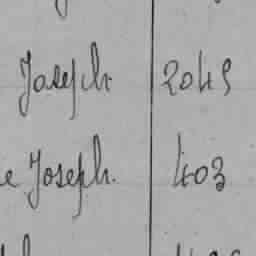 Joseph 2045
e Joseph. 403